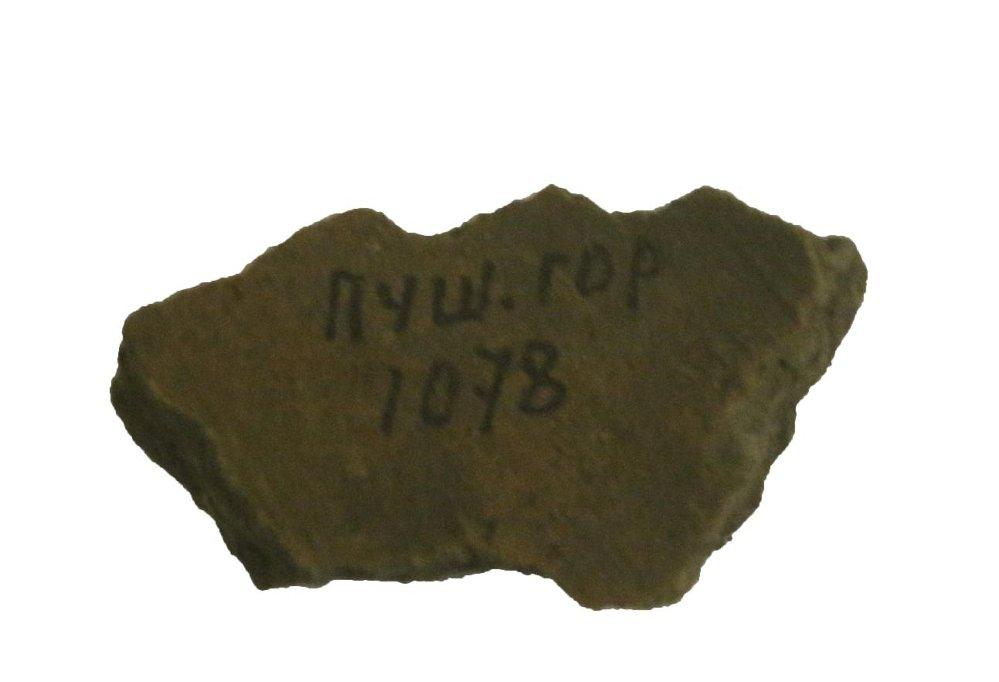 Пуш. гор
1078